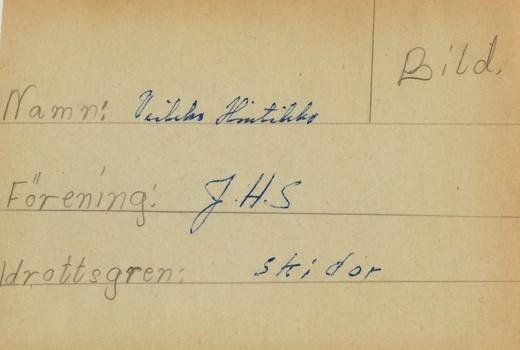 Bild.
Namn: Veikko Hintikko
Förening: J.H.S
Idrottsgren: skidor